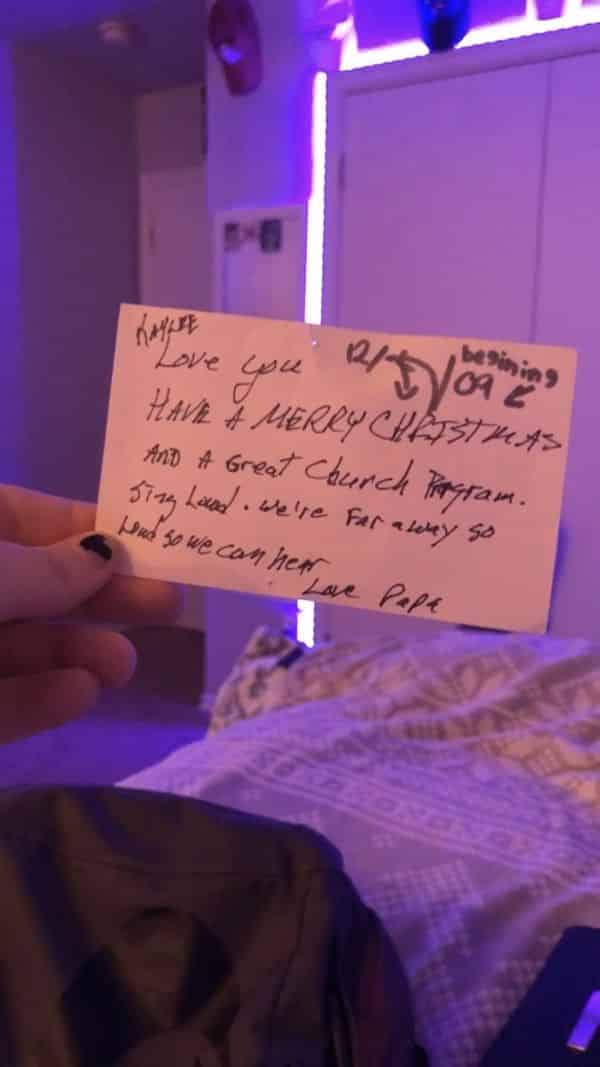 KAYLEE
Love you
12/ /09 begining
HAVE A MERRY CHRISTMAS
AND A Great Church Program.
Sing Loud. We're Far away so
Loud so we can hear
Love Papa